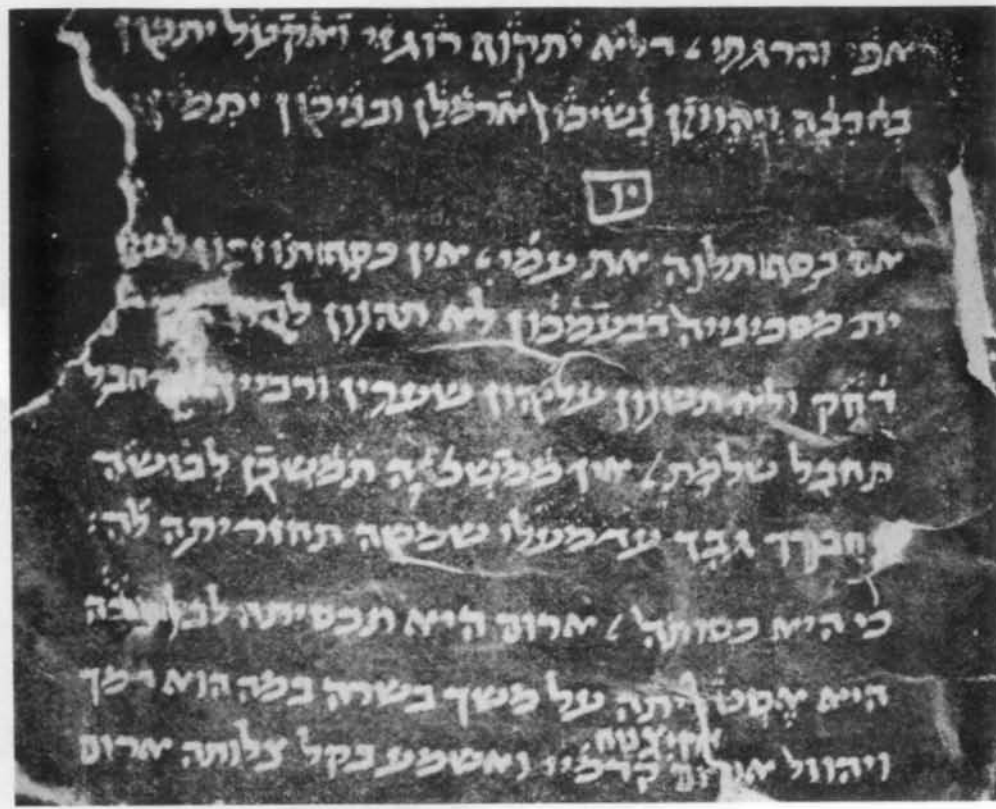 אפי והרגתי / דלא יתקוף רוגזי ואקטל יתכון
בחרבה ויהוויין נשיכון ארמלן ובניכון יתמין
אם כסף תלוה את עמי / אין כסף
ית מסכינייה דבעמכון לא תהוון
דחק ולא תשוון עליהון שערין ורביין חבל
תחבל שלמת / אין תמשכן לבושה
דחברך גבך עד מעלי שמשה תחזר יתה לה׃
כי היא כסותה / ארום היא תכסיתה
היא על משך בשרה במה הוא דמך
קדמיי ואשמע בקל צלותה ארום